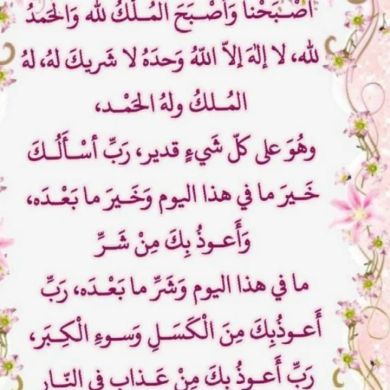 أَصْـبَحْنا وَأَصْـبَحَ المُـلْكُ لله وَالحَمدُ
لله، لا إلهَ إلاّ اللّهُ وَحدَهُ لا شَريكَ لهُ، لهُ
المُـلكُ ولهُ الحَمْـد،
وهُوَ على كلّ شَيءٍ قدير، رَبِّ أسْـأَلُـكَ
خَـيرَ ما في هذا اليوم وَخَـيرَ ما بَعْـدَه،
وَأَعـوذُ بِكَ مِنْ شَـرِّ
ما في هذا اليوم وَشَرِّ ما بَعْـدَه، رَبِّ
أَعـوذُبِكَ مِنَ الْكَسَـلِ وَسـوءِ الْكِبَـر،
رَبِّ أَعـوذُ بِكَ مِنْ عَـذابٍ في النّـار